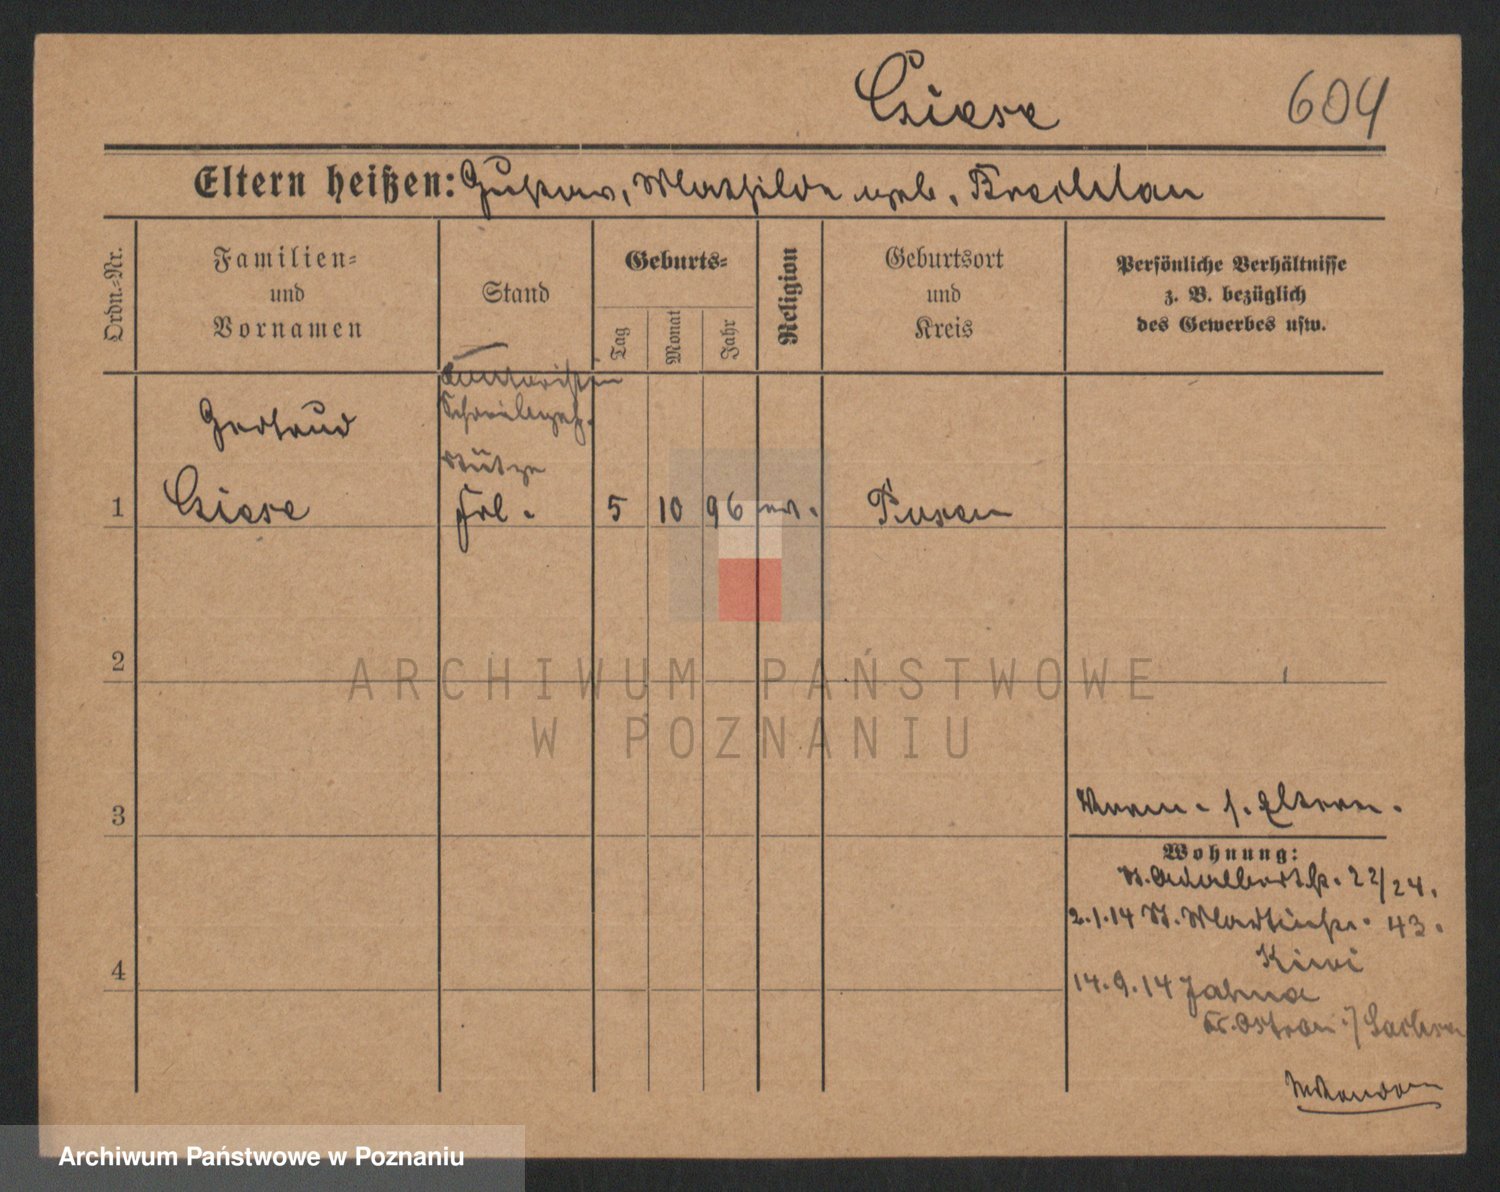 Giese
604
Eltern heißen: Gustav, Mathilde geb.
Ordn.-Nr.
Familien-
und
Vornamen
Stand
Geburts-
Tag
Monat
Jahr
Religion
Geburtsort
und
Kreis
Persönliche Verhältnisse
z. B. bezüglich
des Gewerbes usw.
Kontoristin
Schreibgeh.
Stütze
Gertrud
1 Giese Frl. 5 10 96 ev. Posen
2
3
s. Eltern.
Wohnung:
St. Adalbertstr. 22/24.
2.1.14 St. Martinstr. 43.
4
14.9.14 Jahna
ARCHIWUM PAŃSTWOWE
W POZNANIU
Archiwum Państwowe w Poznaniu